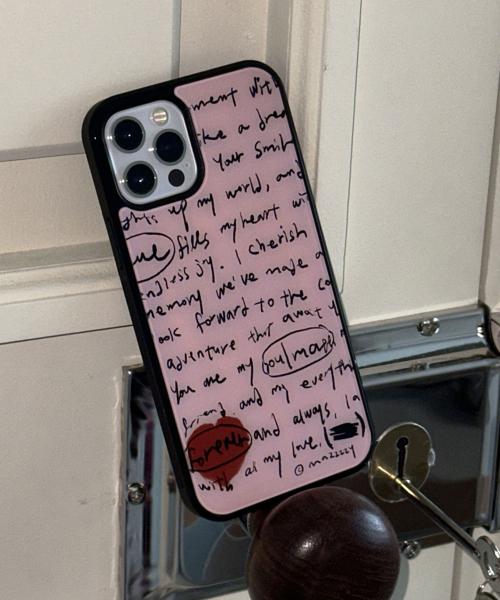 ment with
like a drea
Your smil
ghts up my world, and
ve fills my heart wi
endless joy. I cherish
memory we've made a
ook forward to the co
adventure that await y
You are my soulmate
friend and my everyth
forever and always, I a
with all my love,
© mnzzzzy